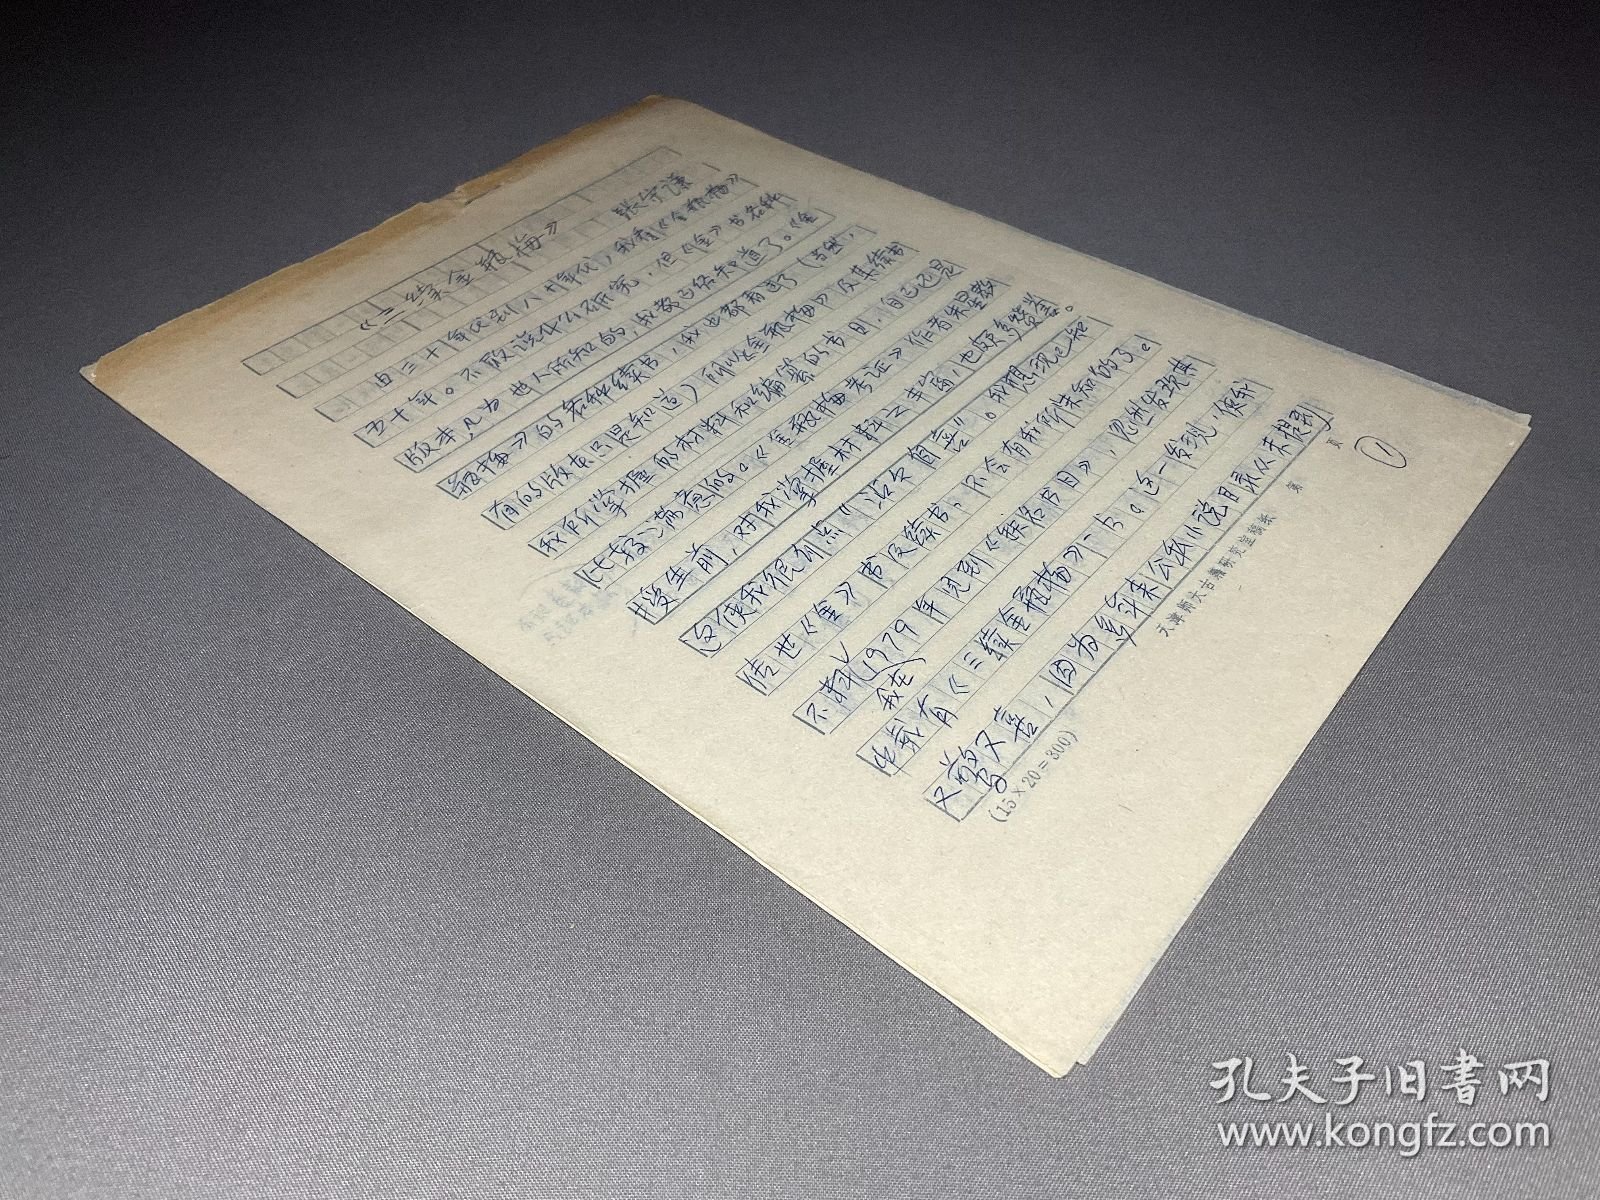 《三续金瓶梅》
张守谦
由三十年代到八十年代，我看《金瓶梅》
五十年。不敢说什么研究，但《金》书各种
版本，凡为世人所知的，我都已经知道了。《金
瓶梅》的各种续书，我也都看过了（当然，
有的版本只是知道）所以《金瓶梅》及其续书
我所掌握的材料和编纂的书目，自己还是
比较满意的。《金瓶梅考证》作者朱星教
授生前，对我掌握材料之丰富，也颇多赞誉。
这使我很有点“沾沾自喜”。我想现已知
传世《金》书及续书，不会有我所未知的了。
不料1979年我在见到《佚名书目》，忽然发现其
中载有《三续金瓶梅》一书。这一发现，使我
又惊又喜，因为多年来公私小说目录从未提到
①
天津师大古籍研究室稿纸 第 页
(15×20=300)
孔夫子旧书网
www.kongfz.com